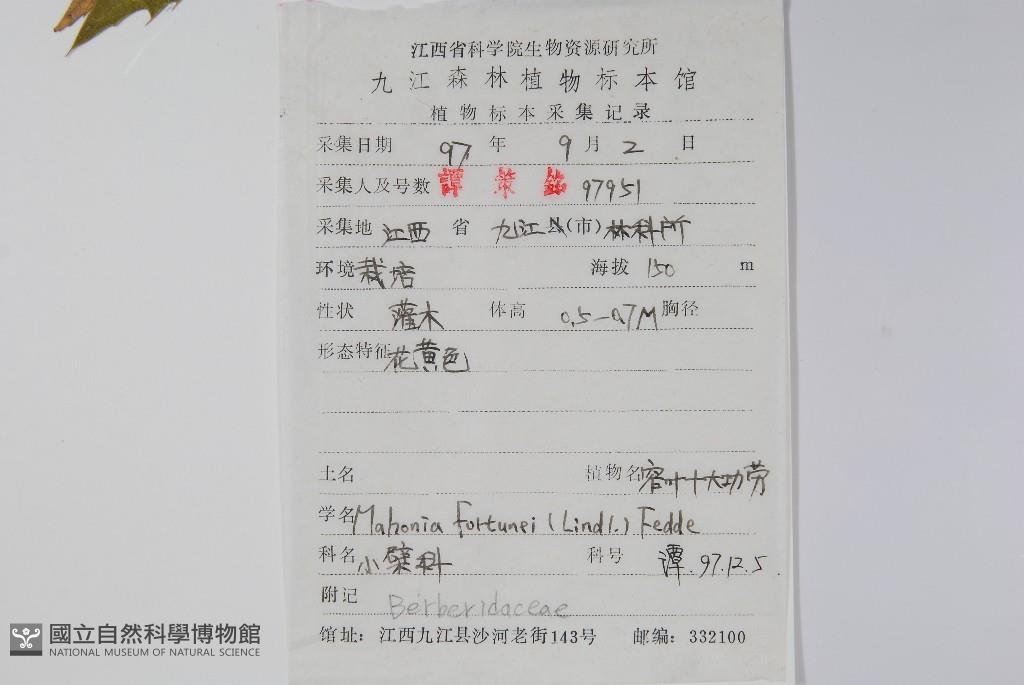 江西省科学院生物资源研究所
九江森林植物标本馆
植物标本采集记录
采集日期 97 年 9 月 2 日
采集人及号数 譚策铭 97951
采集地 江西 省 九江县(市)林科所
环境 栽培 海拔 150 m
性状 灌木 体高 0.5-0.7M 胸径
形态特征 花黄色
土名 植物名 窄叶十大功劳
学名 Mahonia fortunei (Lindl.) Fedde
科名 小檗科 科号 譚.97.12.5
附记 Berberidaceae
馆址：江西九江县沙河老街143号 邮编：332100
國立自然科學博物館
NATIONAL MUSEUM OF NATURAL SCIENCE